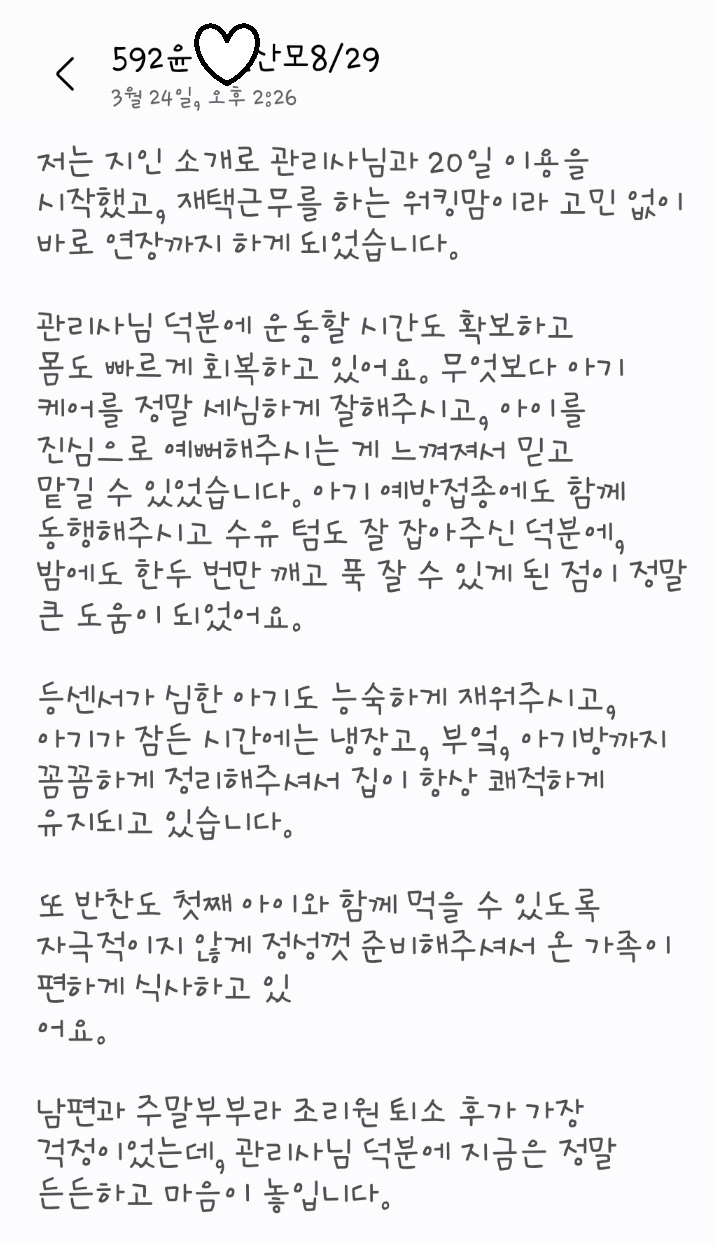 592윤 산모8/29
3월 24일, 오후 2:26
저는 지인 소개로 관리사님과 20일 이용을
시작했고, 재택근무를 하는 워킹맘이라 고민 없이
바로 연장까지 하게 되었습니다.
관리사님 덕분에 운동할 시간도 확보하고
몸도 빠르게 회복하고 있어요. 무엇보다 아기
케어를 정말 세심하게 잘해주시고, 아이를
진심으로 예뻐해주시는 게 느껴져서 믿고
맡길 수 있었습니다. 아기 예방접종에도 함께
동행해주시고 수유 텀도 잘 잡아주신 덕분에,
밤에도 한두 번만 깨고 푹 잘 수 있게 된 점이 정말
큰 도움이 되었어요.
등센서가 심한 아기도 능숙하게 재워주시고,
아기가 잠든 시간에는 냉장고, 부엌, 아기방까지
꼼꼼하게 정리해주셔서 집이 항상 쾌적하게
유지되고 있습니다.
또 반찬도 첫째 아이와 함께 먹을 수 있도록
자극적이지 않게 정성껏 준비해주셔서 온 가족이
편하게 식사하고 있
어요.
남편과 주말부부라 조리원 퇴소 후가 가장
걱정이었는데, 관리사님 덕분에 지금은 정말
든든하고 마음이 놓입니다.